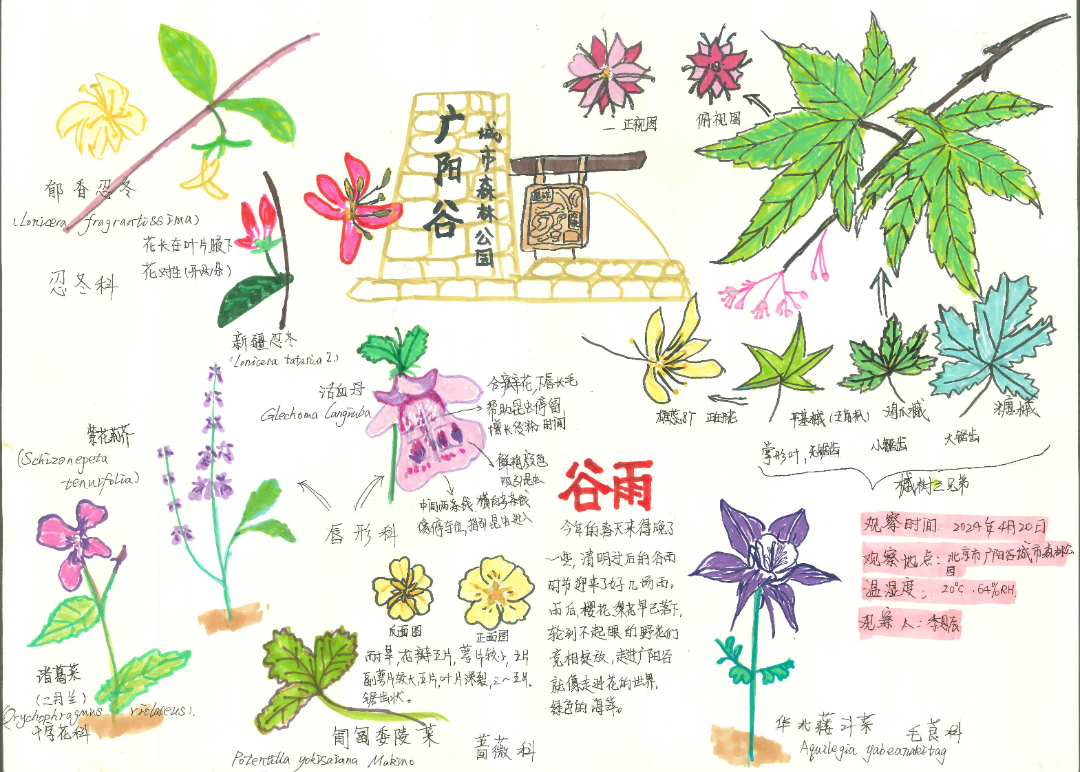 广阳谷
城市森林公园
正视图
俯视图
郁香忍冬
(Lonicera fragrantissima)
忍冬科
花长在叶片腋下
花对性(开两朵)
新疆忍冬
(Lonicera tatarica L)
活血丹
Glechoma longituba
合瓣花,下唇长毛
帮助昆虫停留
增长授粉时间
鲜艳颜色
吸引昆虫
中间两条线 横向多条线
像停车位,指引昆虫进入
唇形科
(Schizonepeta
tenuifolia)
诸葛菜
(二月兰)
Orychophragmus violaceus.
十字花科
反面图
正面图
耐旱,花瓣五片,萼片较小,五片
副萼片较大,五片,叶片深裂,三~五片,
锯齿状。
匍匐委陵菜
Potentilla yokusaiana Makino
蔷薇科
谷雨
今年的春天来得晚了
一些,清明过后的谷雨
时节迎来了好几场雨。
雨后,樱花、梨花早已落下,
轮到不起眼的野花们
亮相绽放,走进广阳谷
就像走进花的世界,
绿色的海洋。
掌形叶,无锯齿
小锯齿
大锯齿
槭树三兄弟
华北耧斗菜
毛茛科
Aquilegia yabeanakitag
观察时间: 2024年4月20日
观察地点: 北京市广阳谷城市森林公
园
温湿度: 20°C . 64%RH
观察人: